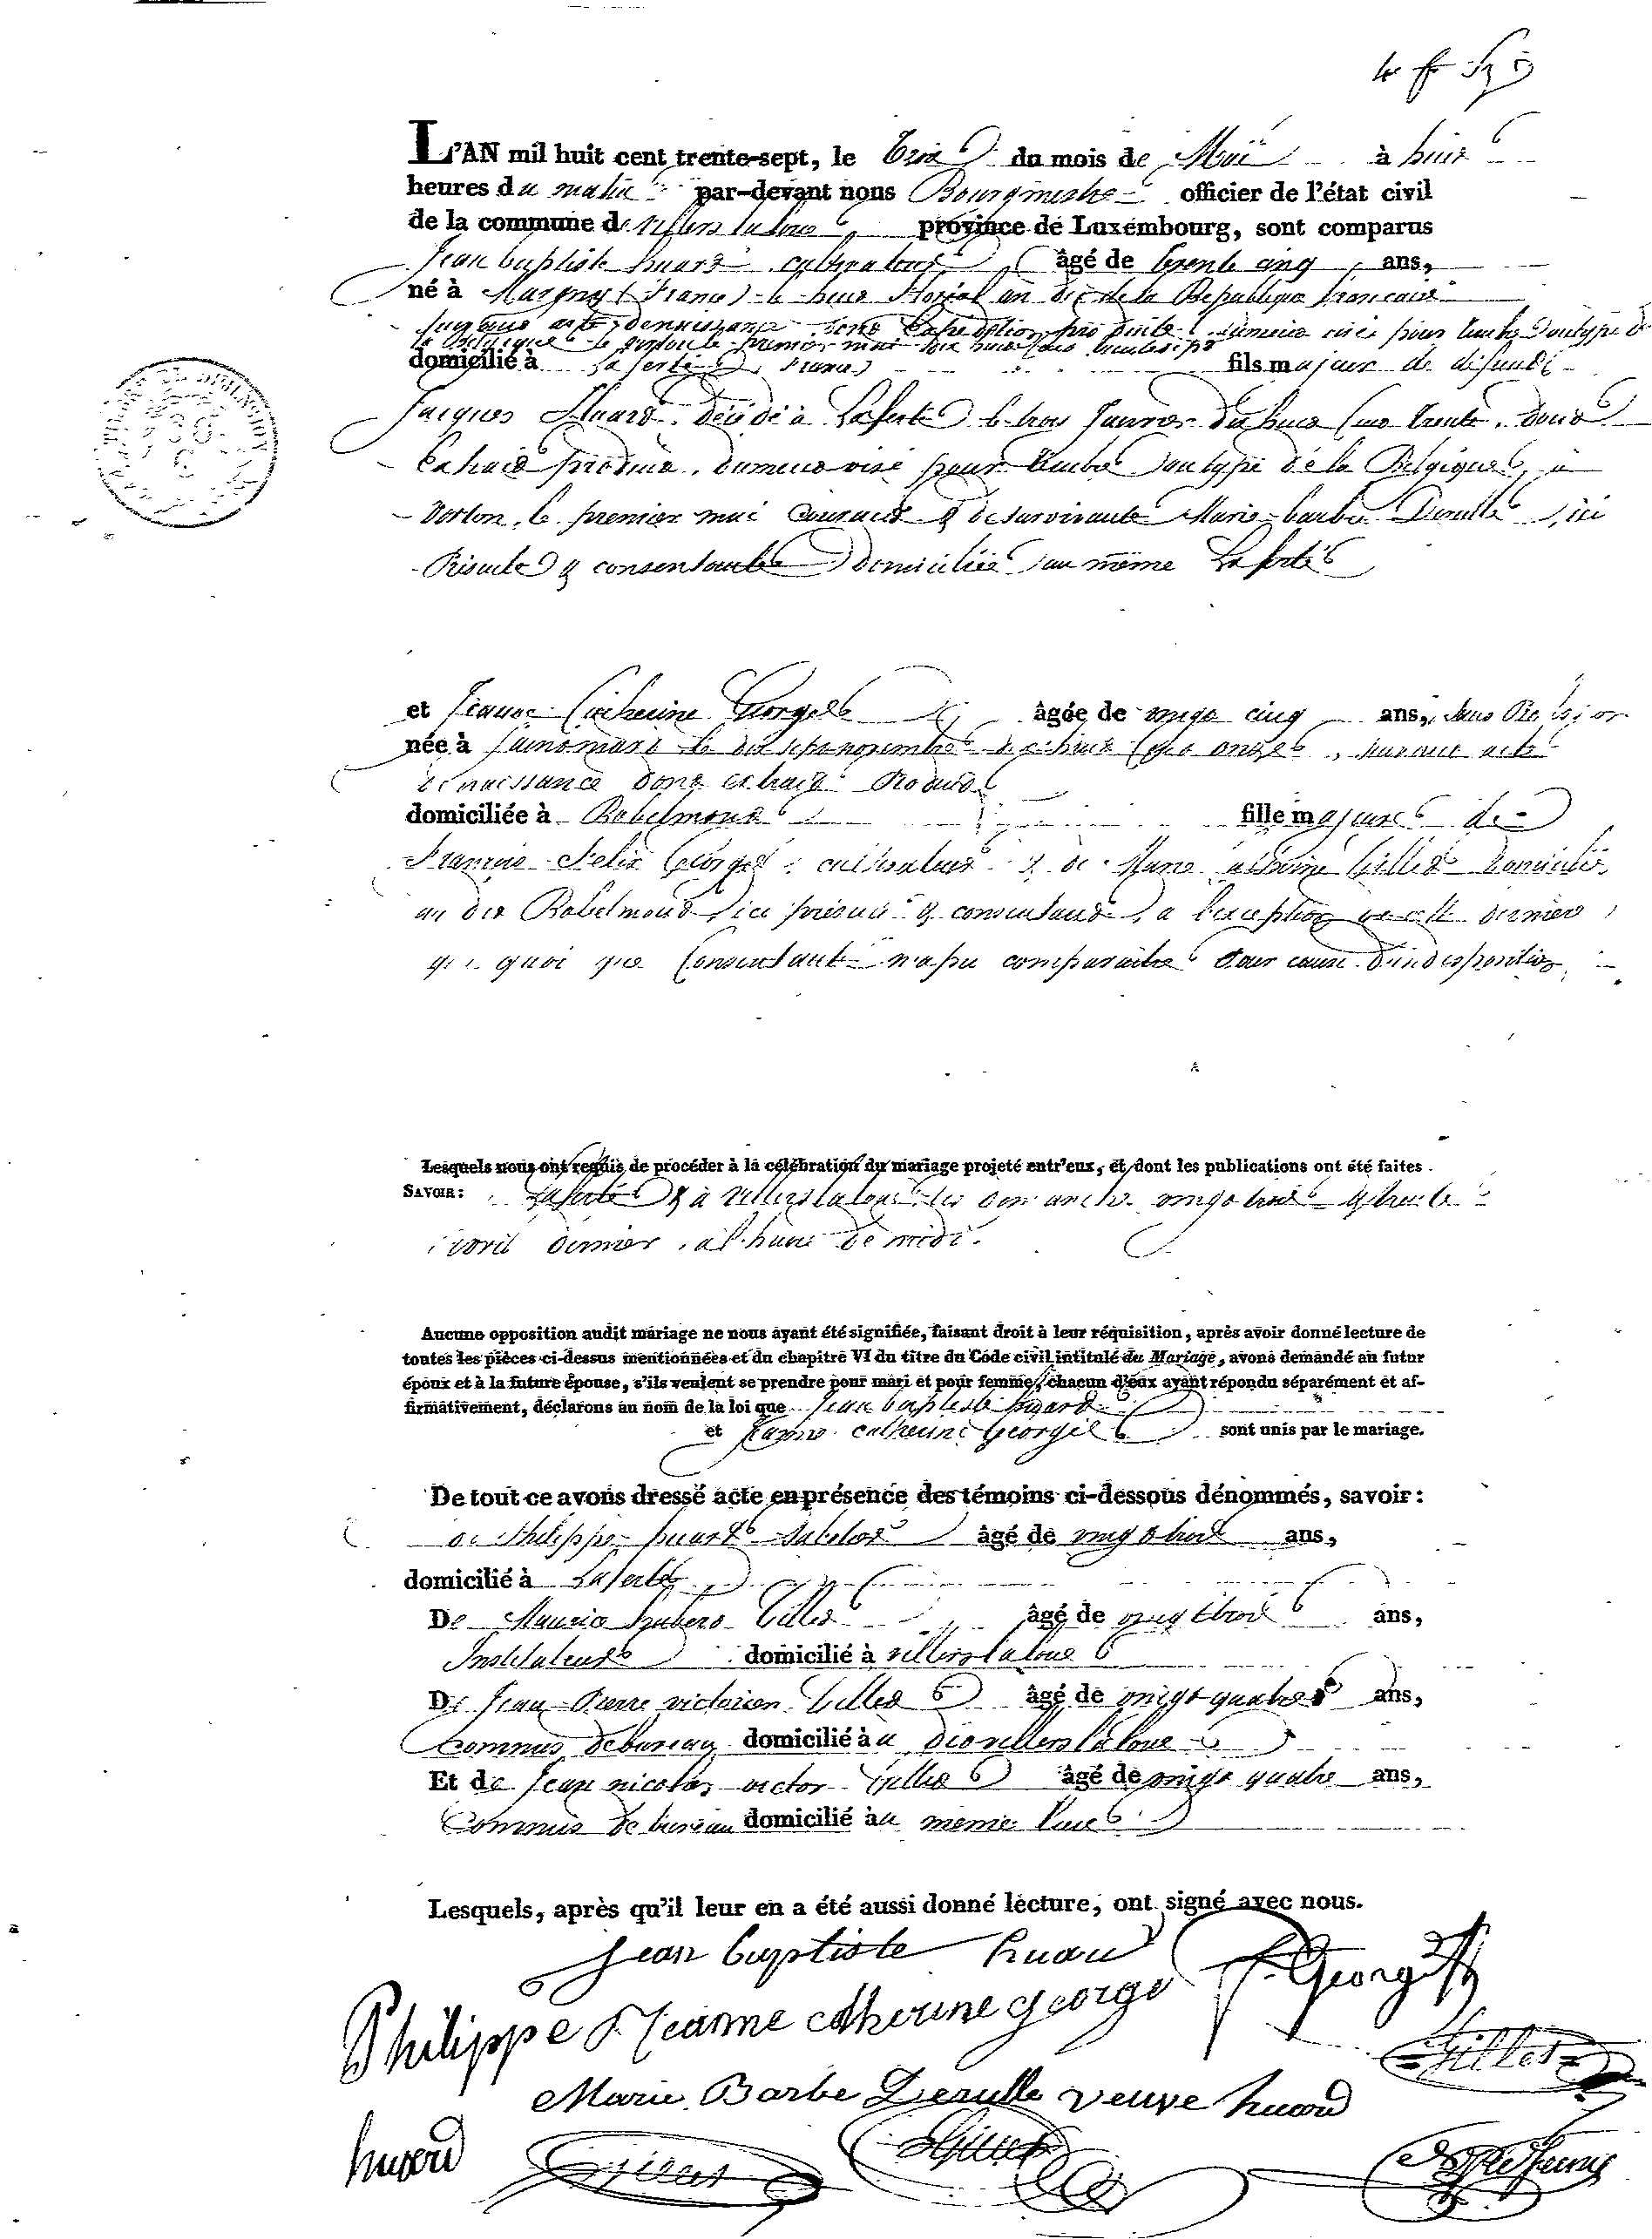 L'AN mil huit cent trente-sept, le trois du mois de Mai à huit
heures du matin par-devant nous Bourgmestre officier de l'état civil
de la commune de villers la loue province de Luxembourg, sont comparus
Jean baptiste huard cultivateur âgé de trente cinq ans,
né à Margny (France) le huit floréal an dix de la République francaise
suivant acte de naissance dont expedition produite dument visée pour timbre
la Belgique le premier mai dix huit cent trente sept
domicilié à La ferté, France fils majeur de défunt
Jacques Huard décédé à Laferté le trois Janvier dix huit cent trente, dont
Extrait produit, dument visé pour timbre de la Belgique, à
virton, le premier mai courant & de survivante Marie barbe Derulle, ici
Présente & consentante domiciliée au même Laferté
et Jeanne Catherine Georges âgée de vingt cinq ans, sans Profession
née à saint mard le dix sept novembre dix huit cent onze, suivant acte
de naissance dont extrait Produit
domiciliée à Robelmont fille majeure de
François Felix Georges, cultivateur & de Marie Gilles domiciliés
au dit Robelmont, ici présent & consentant, a l'exception de cette derniere
qui quoi que Consentante n'a pu comparaitre Pour cause d'indisposition
Lesquels nous ont requis de procéder à la célébration du mariage projeté entr'eux, et dont les publications ont été faites.
SAVOIR: Laferté & à villers la loue les dimanche vingt trois & trente
avril dernier, à l'heure de midi.
Aucune opposition audit mariage ne nous ayant été signifiée, faisant droit à leur réquisition, après avoir donné lecture de
toutes les pièces ci-dessus mentionnées et du chapitre VI du titre du Code civil intitulé du Mariage, avons demandé au futur
époux et à la future épouse, s'ils veulent se prendre pour mari et pour femme, chacun d'eux ayant répondu séparément et af-
firmativement, déclarons au nom de la loi que Jean baptiste huard
et Jeanne catherine Georges sont unis par le mariage.
De tout ce avons dressé acte en présence des témoins ci-dessous dénommés, savoir:
de Philippe huart âgé de vingt trois ans,
domicilié à Laferté
De Maurice hubert Gilles âgé de vingt trois ans,
Instituteur domicilié à villers la loue
De Jean Pierre victorien Gilles âgé de vingt quatre ans,
Commis de bureau domicilié au dit villers la loue
Et de Jean nicolas victor Gilles âgé de vingt quatre ans,
Commis de bureau domicilié au même lieu
Lesquels, après qu'il leur en a été aussi donné lecture, ont signé avec nous.
jean baptiste huard
F. Georges
Philippe Jeanne catherine george
Gilles
Marie Barbe Derulle veuve huard
huard Gilles Gilles